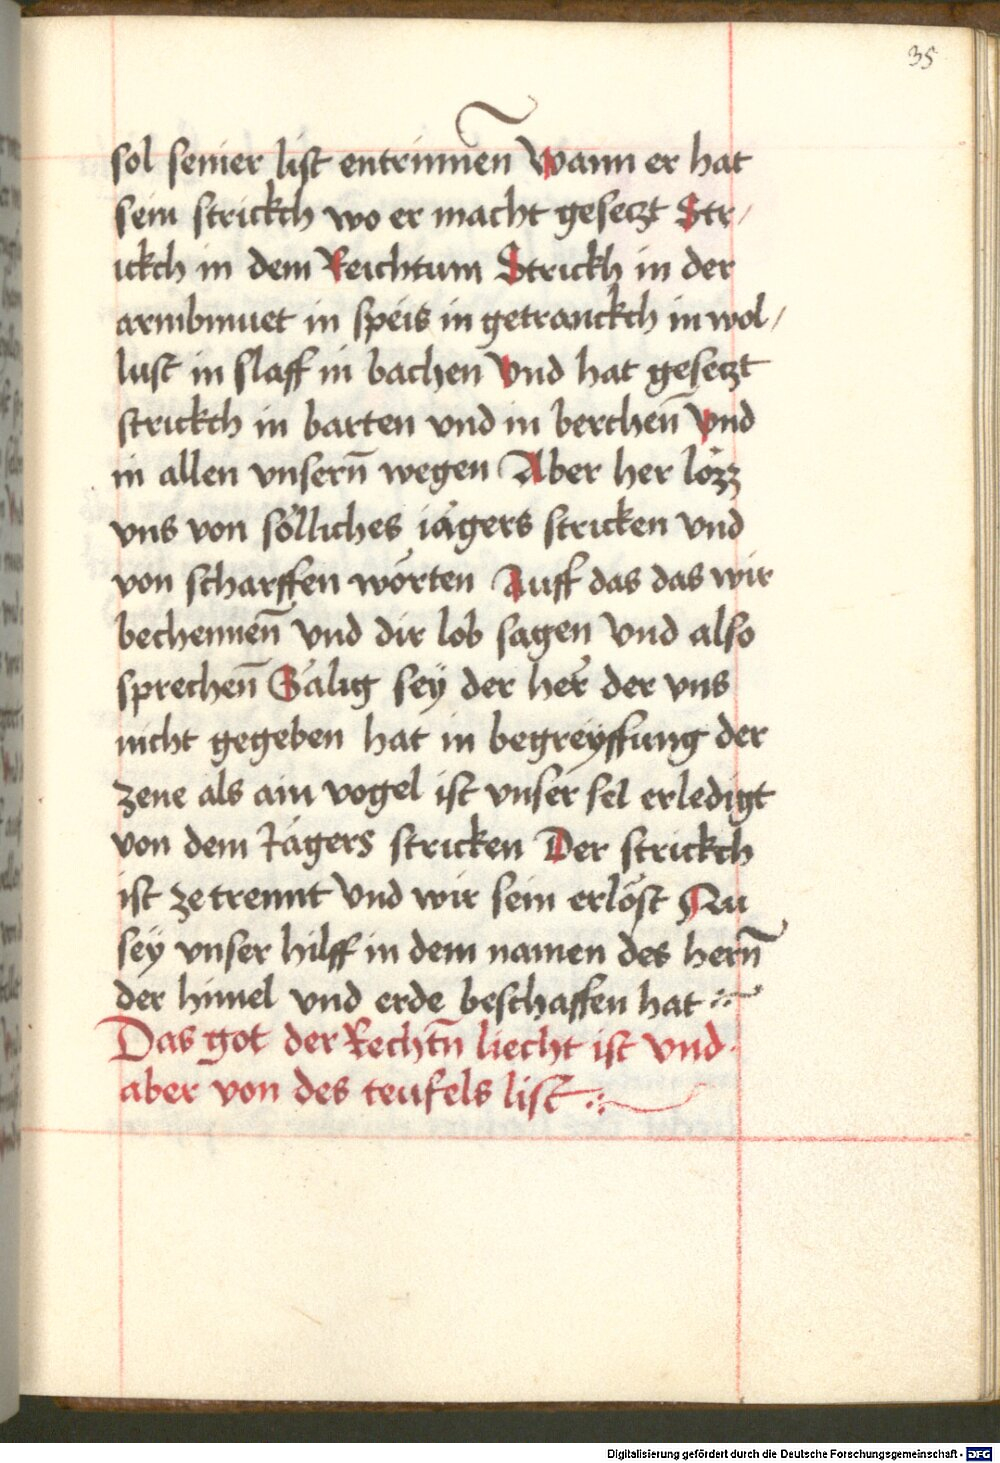 35
sol seiner list entrinnen̄ Wann er hat
sein strickch wo er macht gesetzt Str/
ickch in dem Reichtum Strickh in der
armbmuet in speis in getranckch in wol/
lust in slaff in bachen Vnd hat gesetzt
strickch in barten vnd in berchen̄ Vnd
in allen vnsern̄ wegen Aber her lözz
vns von sölliches iägers stricken vnd
von scharffen wörten Auff das das wir
bechennen̄ Vnd dir lob sagen Vnd also
sprechen̄ Sälig seÿ der her der vns
nicht gegeben hat in begreÿffung der
zene als ain vogel ist vnser sel erledigt
von dem Jägers stricken Der strickch
ist zetrennt Vnd wir sein erlöst Nu
seÿ vnser hilff in dem namen des hern̄
der himel vnd erde beschaffen hat
Das got der Rechtn̄ liecht ist vnd
aber von des teufels list
Digitalisierung gefördert durch die Deutsche Forschungsgemeinschaft - DFG